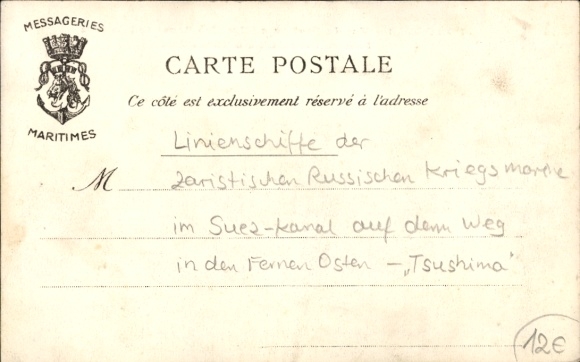 MESSAGERIES
MARITIMES
CARTE POSTALE
Ce côté est exclusivement réservé à l'adresse
Linienschiffe der
M zaristischen Russischen Kriegsmarine
im Suez-Kanal auf dem Weg
in den Fernen Osten – „Tsushima"
12€